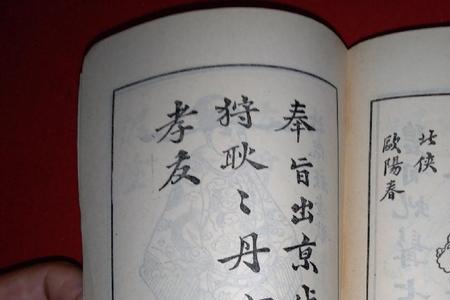 北俠
歐陽春
奉旨出京
狩耿〻丹
孝友